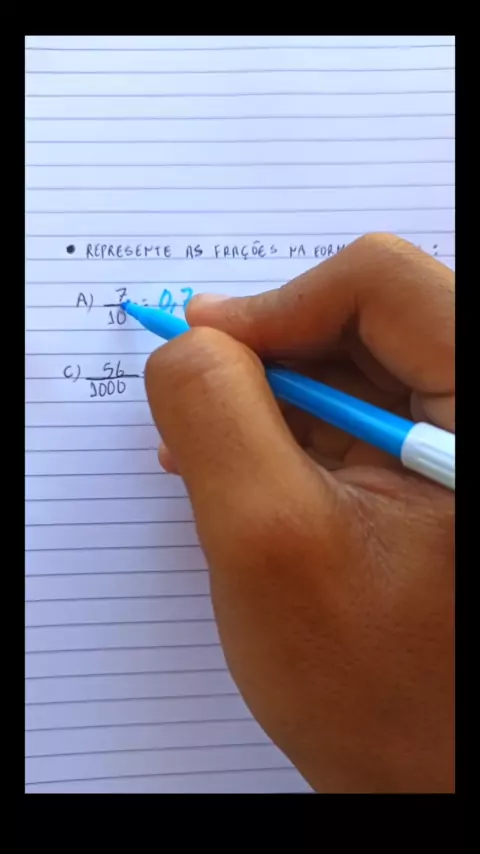 • REPRESENTE AS FRAÇÕES NA :
A) 7/10 = 0,7
C) 56/1000 =